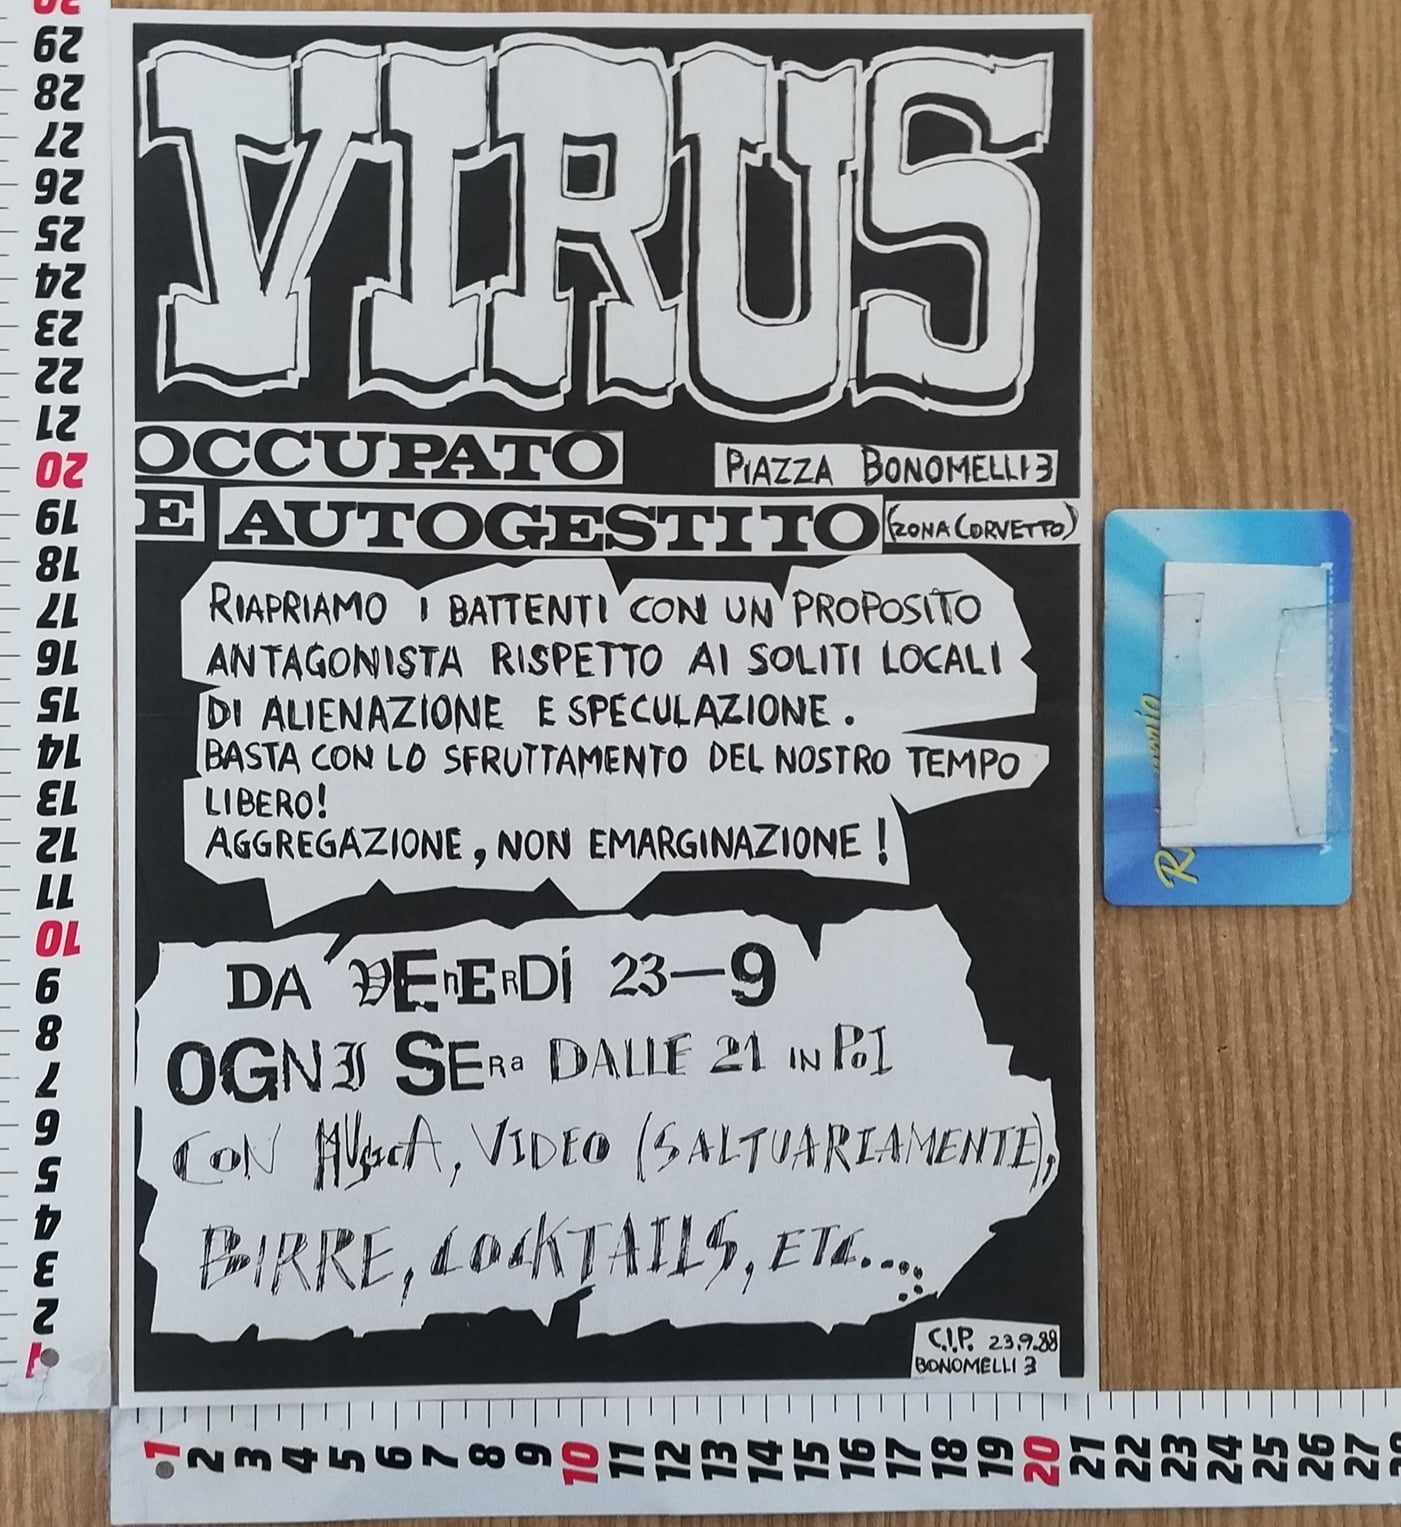 VIRUS
OCCUPATO
PIAZZA BONOMELLI 3
E AUTOGESTITO (ZONA CORVETTO)
RIAPRIAMO I BATTENTI CON UN PROPOSITO
ANTAGONISTA RISPETTO AI SOLITI LOCALI
DI ALIENAZIONE E SPECULAZIONE.
BASTA CON LO SFRUTTAMENTO DEL NOSTRO TEMPO
LIBERO!
AGGREGAZIONE, NON EMARGINAZIONE!
DA VEnERDÌ 23-9
OGNI SERa DALLE 21 IN PoI
CoN MUsicA, VIDEO (SALTUARIAMENTE),
BIRRE, COCKTAILS, ETC....
C.I.P. 23.9.88
BONOMELLI 3
29
28
27
26
25
24
23
22
21
20
19
18
17
16
15
14
13
12
11
10
9
8
7
6
5
4
3
2
1
1 2 3 4 5 6 7 8 9 10 11 12 13 14 15 16 17 18 19 20 21 22 23 24 25 26 27